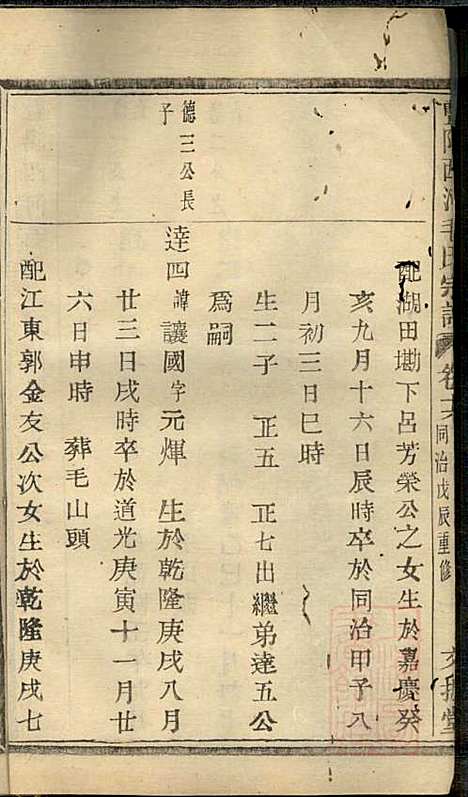 暨陽西河毛氏宗譜 卷十六 同治戊辰重修
配湖田墈下呂芳榮公之女生於嘉慶癸
亥九月十六日辰時卒於同治甲子八
月初三日巳時
生二子 正五 正七出繼弟達五公
爲嗣
德三公長子
達四諱讓國字元煇 生於乾隆庚戌八月
廿三日戌時卒於道光庚寅十一月廿
六日申時 葬毛山頭
配江東郭金友公次女生於乾隆庚戌七